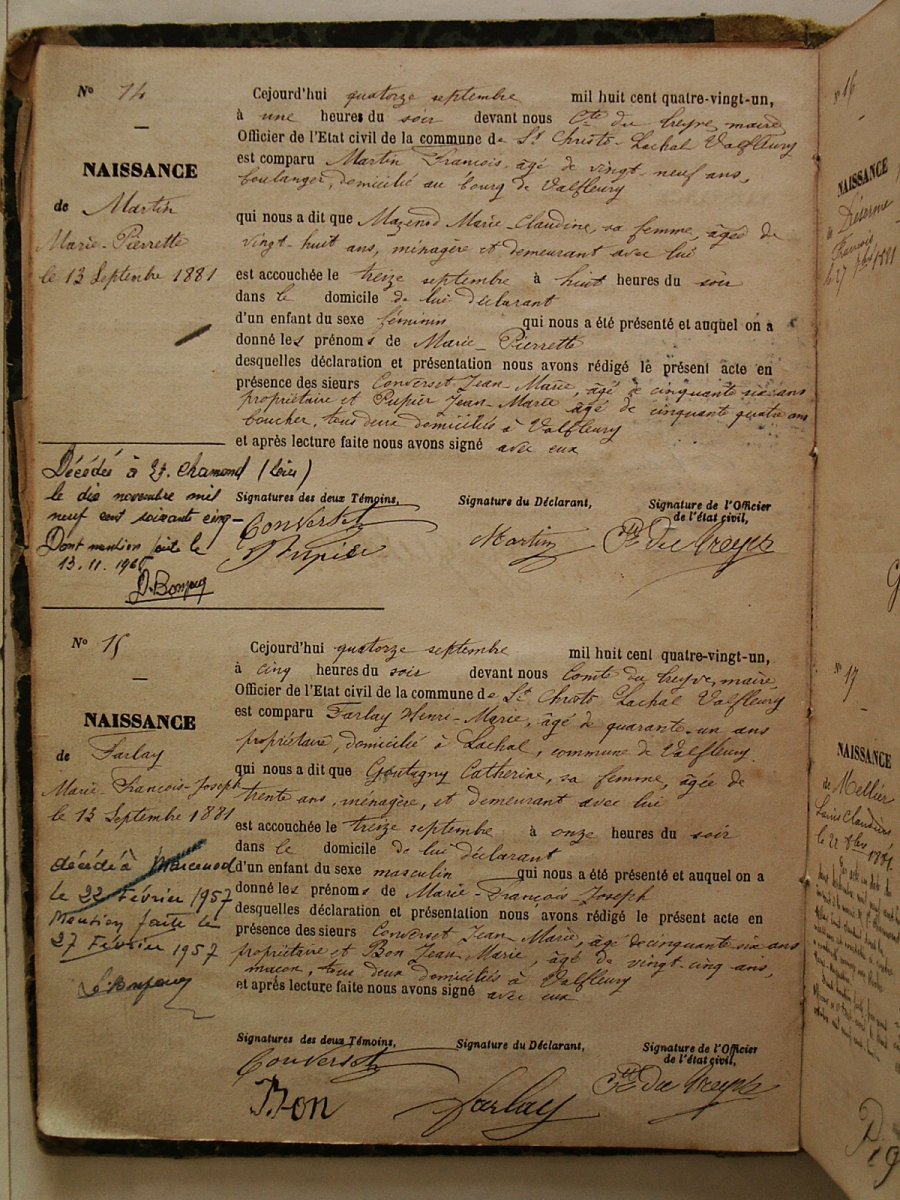 Nº 14
NAISSANCE
de Martin
Marie-Pierrette
le 13 Septembre 1881
Cejourd'hui quatorze septembre mil huit cent quatre-vingt-un,
à une heures du soir devant nous Cte du Treyve, maire
Officier de l'Etat civil de la commune de St Christo-Lachal Valfleury
est comparu Martin François, âgé de vingt-neuf ans,
boulanger, domicilié au bourg de Valfleury
qui nous a dit que Mazenod Marie-Claudine, sa femme, âgée de
vingt-huit ans, ménagère et demeurant avec lui
est accouchée le treize septembre à huit heures du soir
dans le domicile de lui déclarant
d'un enfant du sexe féminin qui nous a été présenté et auquel on a
donné les prénoms de Marie-Pierrette
desquelles déclaration et présentation nous avons rédigé le présent acte en
présence des sieurs Converset Jean-Marie, âgé de cinquante six ans
propriétaire et Pupier Jean-Marie âgé de cinquante quatre ans
boucher, tous deux domiciliés à Valfleury
et après lecture faite nous avons signé avec eux
Décédée à St. Chamond (Loire)
le dix novembre mil
neuf cent soixante cinq-
Dont mention faite le
13.11.1965
Signatures des deux Témoins,
Signature du Déclarant,
Signature de l'Officier
de l'état civil,
Converset
Pupier
Martin
Cte du Treyve
Nº 15
NAISSANCE
de Farlay
Marie-François-Joseph
le 13 Septembre 1881
Cejourd'hui quatorze septembre mil huit cent quatre-vingt-un,
à cinq heures du soir devant nous Comte du Treyve, maire,
Officier de l'Etat civil de la commune de St Christo Lachal Valfleury
est comparu Farlay Henri-Marie, âgé de quarante-un ans
propriétaire, domicilié à Lachal, commune de Valfleury
qui nous a dit que Goutagny Catherine, sa femme, âgée de
trente ans, ménagère, et demeurant avec lui
est accouchée le treize septembre à onze heures du soir
dans le domicile de lui déclarant
d'un enfant du sexe masculin qui nous a été présenté et auquel on a
donné les prénoms de Marie-François-Joseph
desquelles déclaration et présentation nous avons rédigé le présent acte en
présence des sieurs Converset Jean-Marie, âgé de cinquante six ans
propriétaire et Bon Jean-Marie, âgé de vingt-cinq ans,
maçon, tous deux domiciliés à Valfleury
et après lecture faite nous avons signé avec eux
décédé à Marcenod
le 22 Février 1957
Mention faite le
27 Février 1957
Signatures des deux Témoins,
Signature du Déclarant,
Signature de l'Officier
de l'état civil,
Converset
Bon
Farlay
Cte du Treyve
Nº 16
NAISSANCE
François
Nº 17
NAISSANCE
de Mellier